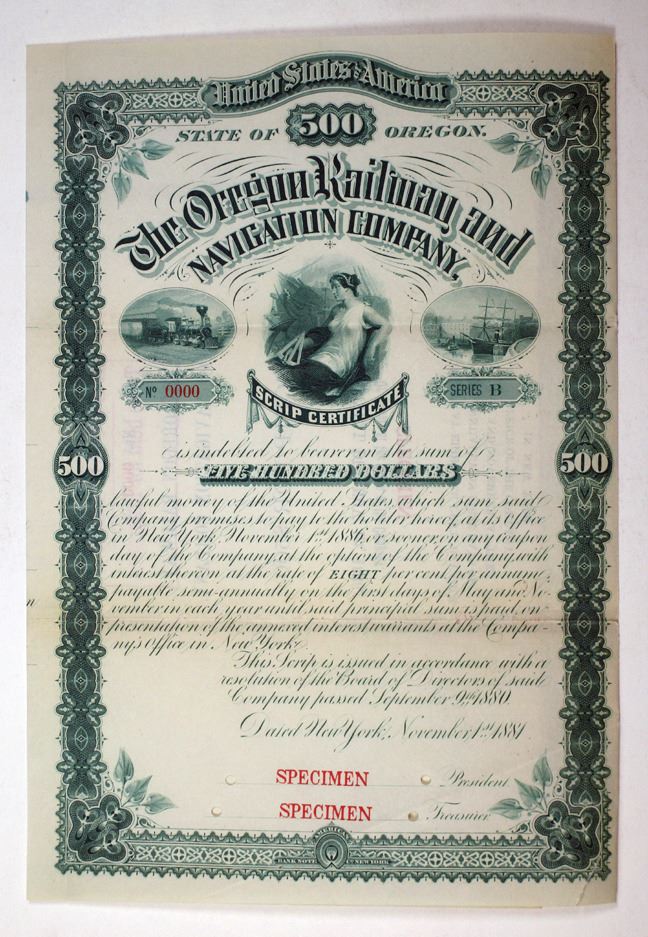 United States of America
STATE OF 500 OREGON.
The Oregon Railway and
NAVIGATION COMPANY.
Nº 0000
SERIES B
SCRIP CERTIFICATE
is indebted to bearer in the sum of
500 FIVE HUNDRED DOLLARS 500
lawful money of the United States, which sum said
Company promises to pay to the holder hereof, at its Office
in New York, November 1st 1886, or sooner, on any coupon
day of the Company, at the option of the Company, with
interest thereon, at the rate of EIGHT per cent, per annum,
payable semi-annually on the first days of May and No-
vember in each year until said principal sum is paid, on
presentation of the annexed interest warrants at the Compa-
ny's Office in New York.
This Scrip is issued in accordance with a
resolution of the Board of Directors of said
Company passed September 9th 1880.
Dated New York, November 1st 1881
SPECIMEN President
SPECIMEN Treasurer
AMERICAN
BANK NOTE Co. NEW YORK